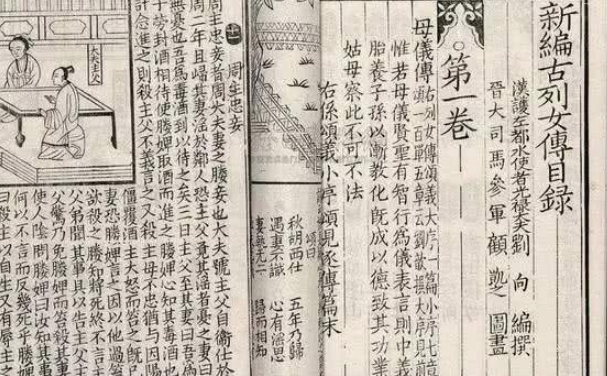 新編古列女傳目録
漢護左都水使者光祿大夫劉 向 編撰
晉大司馬參軍顧 凱之 圖畫
第一卷
母儀傳
惟若母儀賢聖有智行為儀表言則中義
胎養子孫以漸教化既成以德致其功業
姑母察此不可不法
右係頌義小序頌見逐傳篇末
頌曰
秋胡西仕 五年乃歸
遇妻不識 心有淫思
妻執無二 歸而相知
十一 周主忠妾
周主忠妾者周大夫妻之媵妾也大夫號主父自衛仕於
周二年且歸其妻淫於鄰人恐主父覺其淫者憂之妻曰
無憂也吾為毒酒封以待之矣三日主父至其妻曰吾為
子勞封酒相待使媵婢取酒而進之媵婢心知其毒酒也
計念進之則殺主父不義言之又殺主母不忠猶與因陽
僵覆酒主大怒而笞之既已
妻恐媵婢言之因以他過笞
欲殺之媵知將死終不言主
父弟聞其事具以告主父主
父驚乃免媵婢而笞殺其妻
使人陰問媵婢曰汝知其事
何以不言而反幾死乎媵
曰殺主以自生又有辱主之
大夫主父